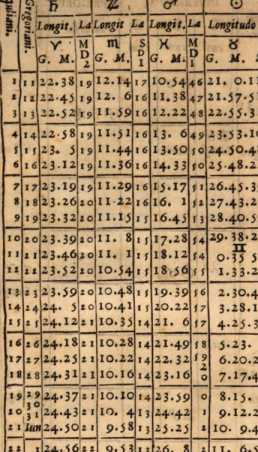 Gregoriani
♄ ♃ ♂ ☉
Longit. La Longit La Longit. La Longitudo
♈ M D 2 ♏ S D 1 ♓ M D 1 ♉
G. M. G. M. G. M. G. M.
1 11 22.38 19 12.14 17 10.54 46 21. 0.1
2 12 22.45 19 12. 6 16 11.38 47 21.57.5
3 13 22.52 19 11.59 16 12.22 48 22.55.3
4 14 22.58 19 11.51 16 13. 6 49 23.53.1
5 15 23. 5 19 11.44 16 13.50 50 24.50.4
6 16 23.12 19 11.36 16 14.33 50 25.48.2
7 17 23.19 19 11.29 16 15.17 51 26.45.3
8 18 23.26 20 11.22 16 16. 1 52 27.43.2
9 19 23.32 20 11.15 15 16.45 53 28.40.5
10 20 23.39 20 11. 8 15 17.28 54 29.38.2
♊
11 21 23.46 20 11. 1 15 18.12 54 0.35 5
12 22 23.52 20 10.54 15 18.56 55 1.33.2
13 23 23.59 20 10.48 15 19.39 56 2.30.4
14 24 24. 5 20 10.41 14 20.22 57 3.28.1
15 25 24.12 21 10.35 14 21. 6 57 4.25.3
16 26 24.18 21 10.28 14 21.49 58 5.23.
17 27 24.25 21 10.22 14 22.32 59 6.20.2
18 28 24.31 21 10.16 14 23.16 0 7.17.4
19 29 24.37 21 10.10 14 23.59 0 8.15.
20 30 31 24.43 21 10. 4 13 24.42 1 9.12.2
21 Iun 24.50 21 9.58 13 25.25 2 10. 9.4
22 1 24.56 22 9.53 11 26. 8